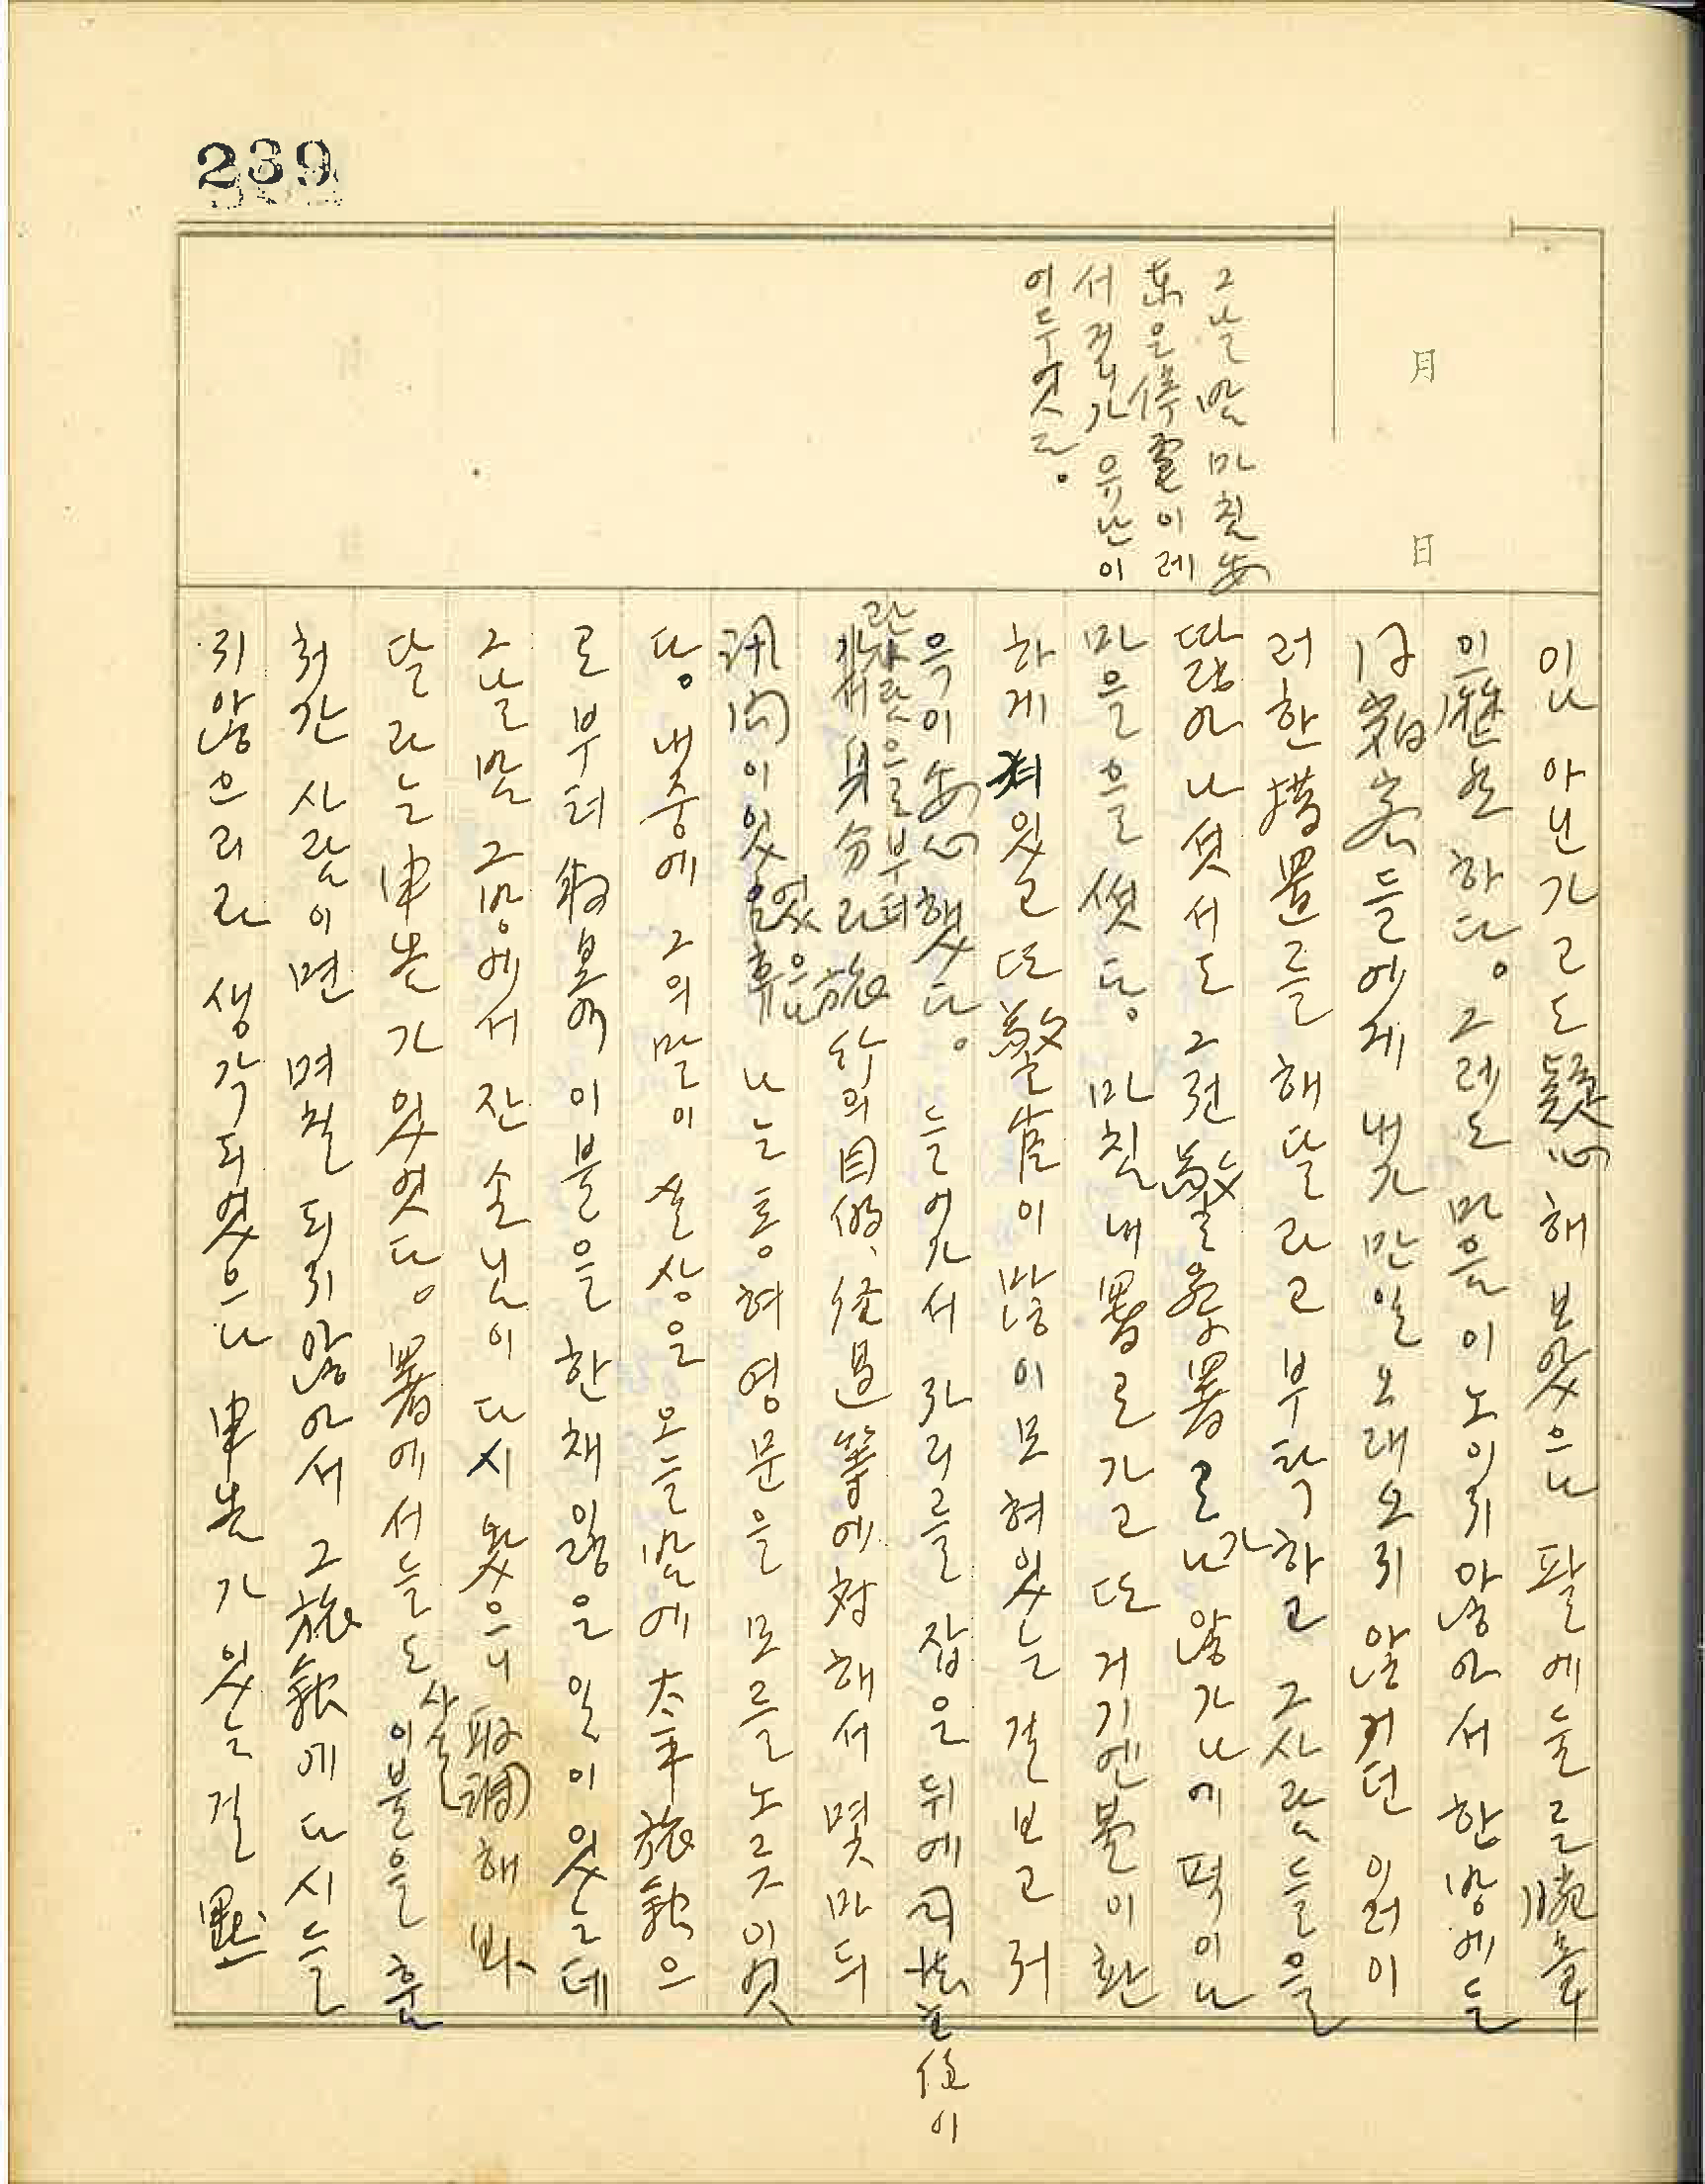 239
月
日
그날 밤 마침 安
東은 停電이레
서 거리가 유난이
어두엇다。
이나 아닌가고도 疑心해 보았으나 팔에 둘른 腕章
이 歷然하다。 그레도 마음이 노이지 않아서 한방에 든
同宿客들에게 내가 만일 오래 오지 않거던 이러이
러한 措置를 해달라고 부탁하고 그 사람들을
딸아 나섯서도 그건 警察署로나 가 않가나에 퍽이나
마음을 썻다。 마침내 署로 가고 또 거기엔 불이 환
하게 켜있고 또 警官이 많이 모혀 있는 걸 보고 저
윽이 安心했다。 들어가서 자리를 잡은 뒤에 司法主任이
관자랏을부터 身分과 旅行의 目的、 經過 等에 対해서 몇마듸
訊問이 있었으나 나는 통혀 영문을 모를 노릇이엿
다。 내중에 그의 말이 실상은 오늘 밤에 太平旅館으
로부터 이불을 한채 잃은 일이 있는데
그날 밤 그 방에서 잔 손님이 다시 왔으니 取調해 봐
달라는 申告가 있엇다。 署에서들도 사실 이불을 훔
처간 사람이면 며칠 되지 않아서 그 旅館에 다시 들
지 않으리라 생각되였으나 申告가 있는 걸 默